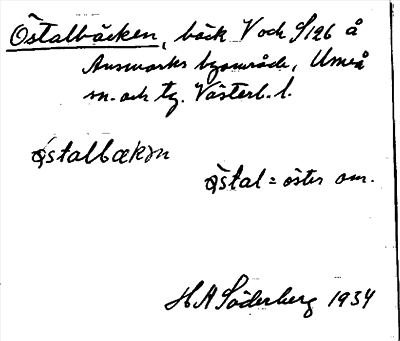 Östalbäcken, bäck V och S 126 å
Ansmarks byområde, Umeå
sn. och tg. Västerb. l.
östalbækən
östal = öster om.
H A Söderberg 1934